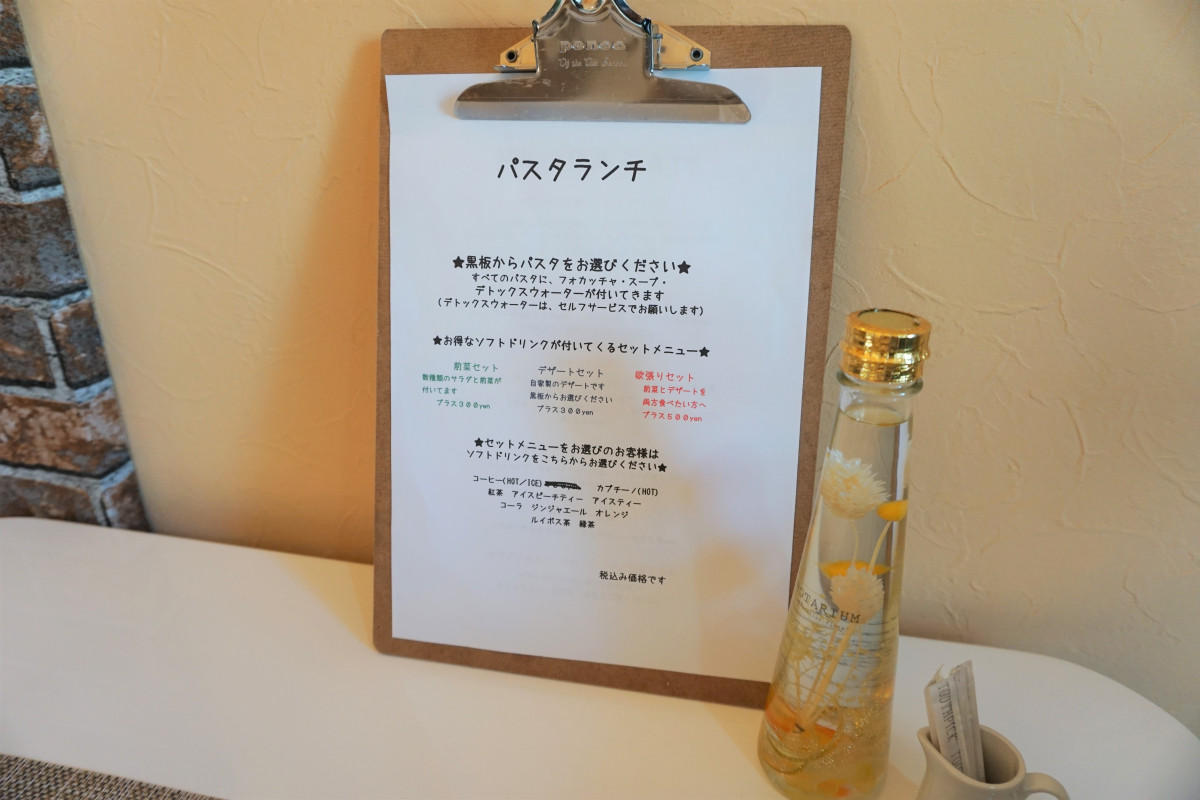 penco
パスタランチ
★黒板からパスタをお選びください★
すべてのパスタに、フォカッチャ・スープ・
デトックスウォーターが付いてきます
(デトックスウォーターは、セルフサービスでお願いします)
★お得なソフトドリンクが付いてくるセットメニュー★
前菜セット
数種類のサラダと前菜が
付いてます
プラス300yen
デザートセット
自家製のデザートです
黒板からお選びください
プラス300yen
欲張りセット
前菜とデザートを
両方食べたい方へ
プラス500yen
★セットメニューをお選びのお客様は
ソフトドリンクをこちらからお選びください★
コーヒー(HOT/ICE) カプチーノ(HOT)
紅茶 アイスピーチティー アイスティー
コーラ ジンジャエール オレンジ
ルイボス茶 緑茶
税込み価格です
TARIUM
TOOTHPICK